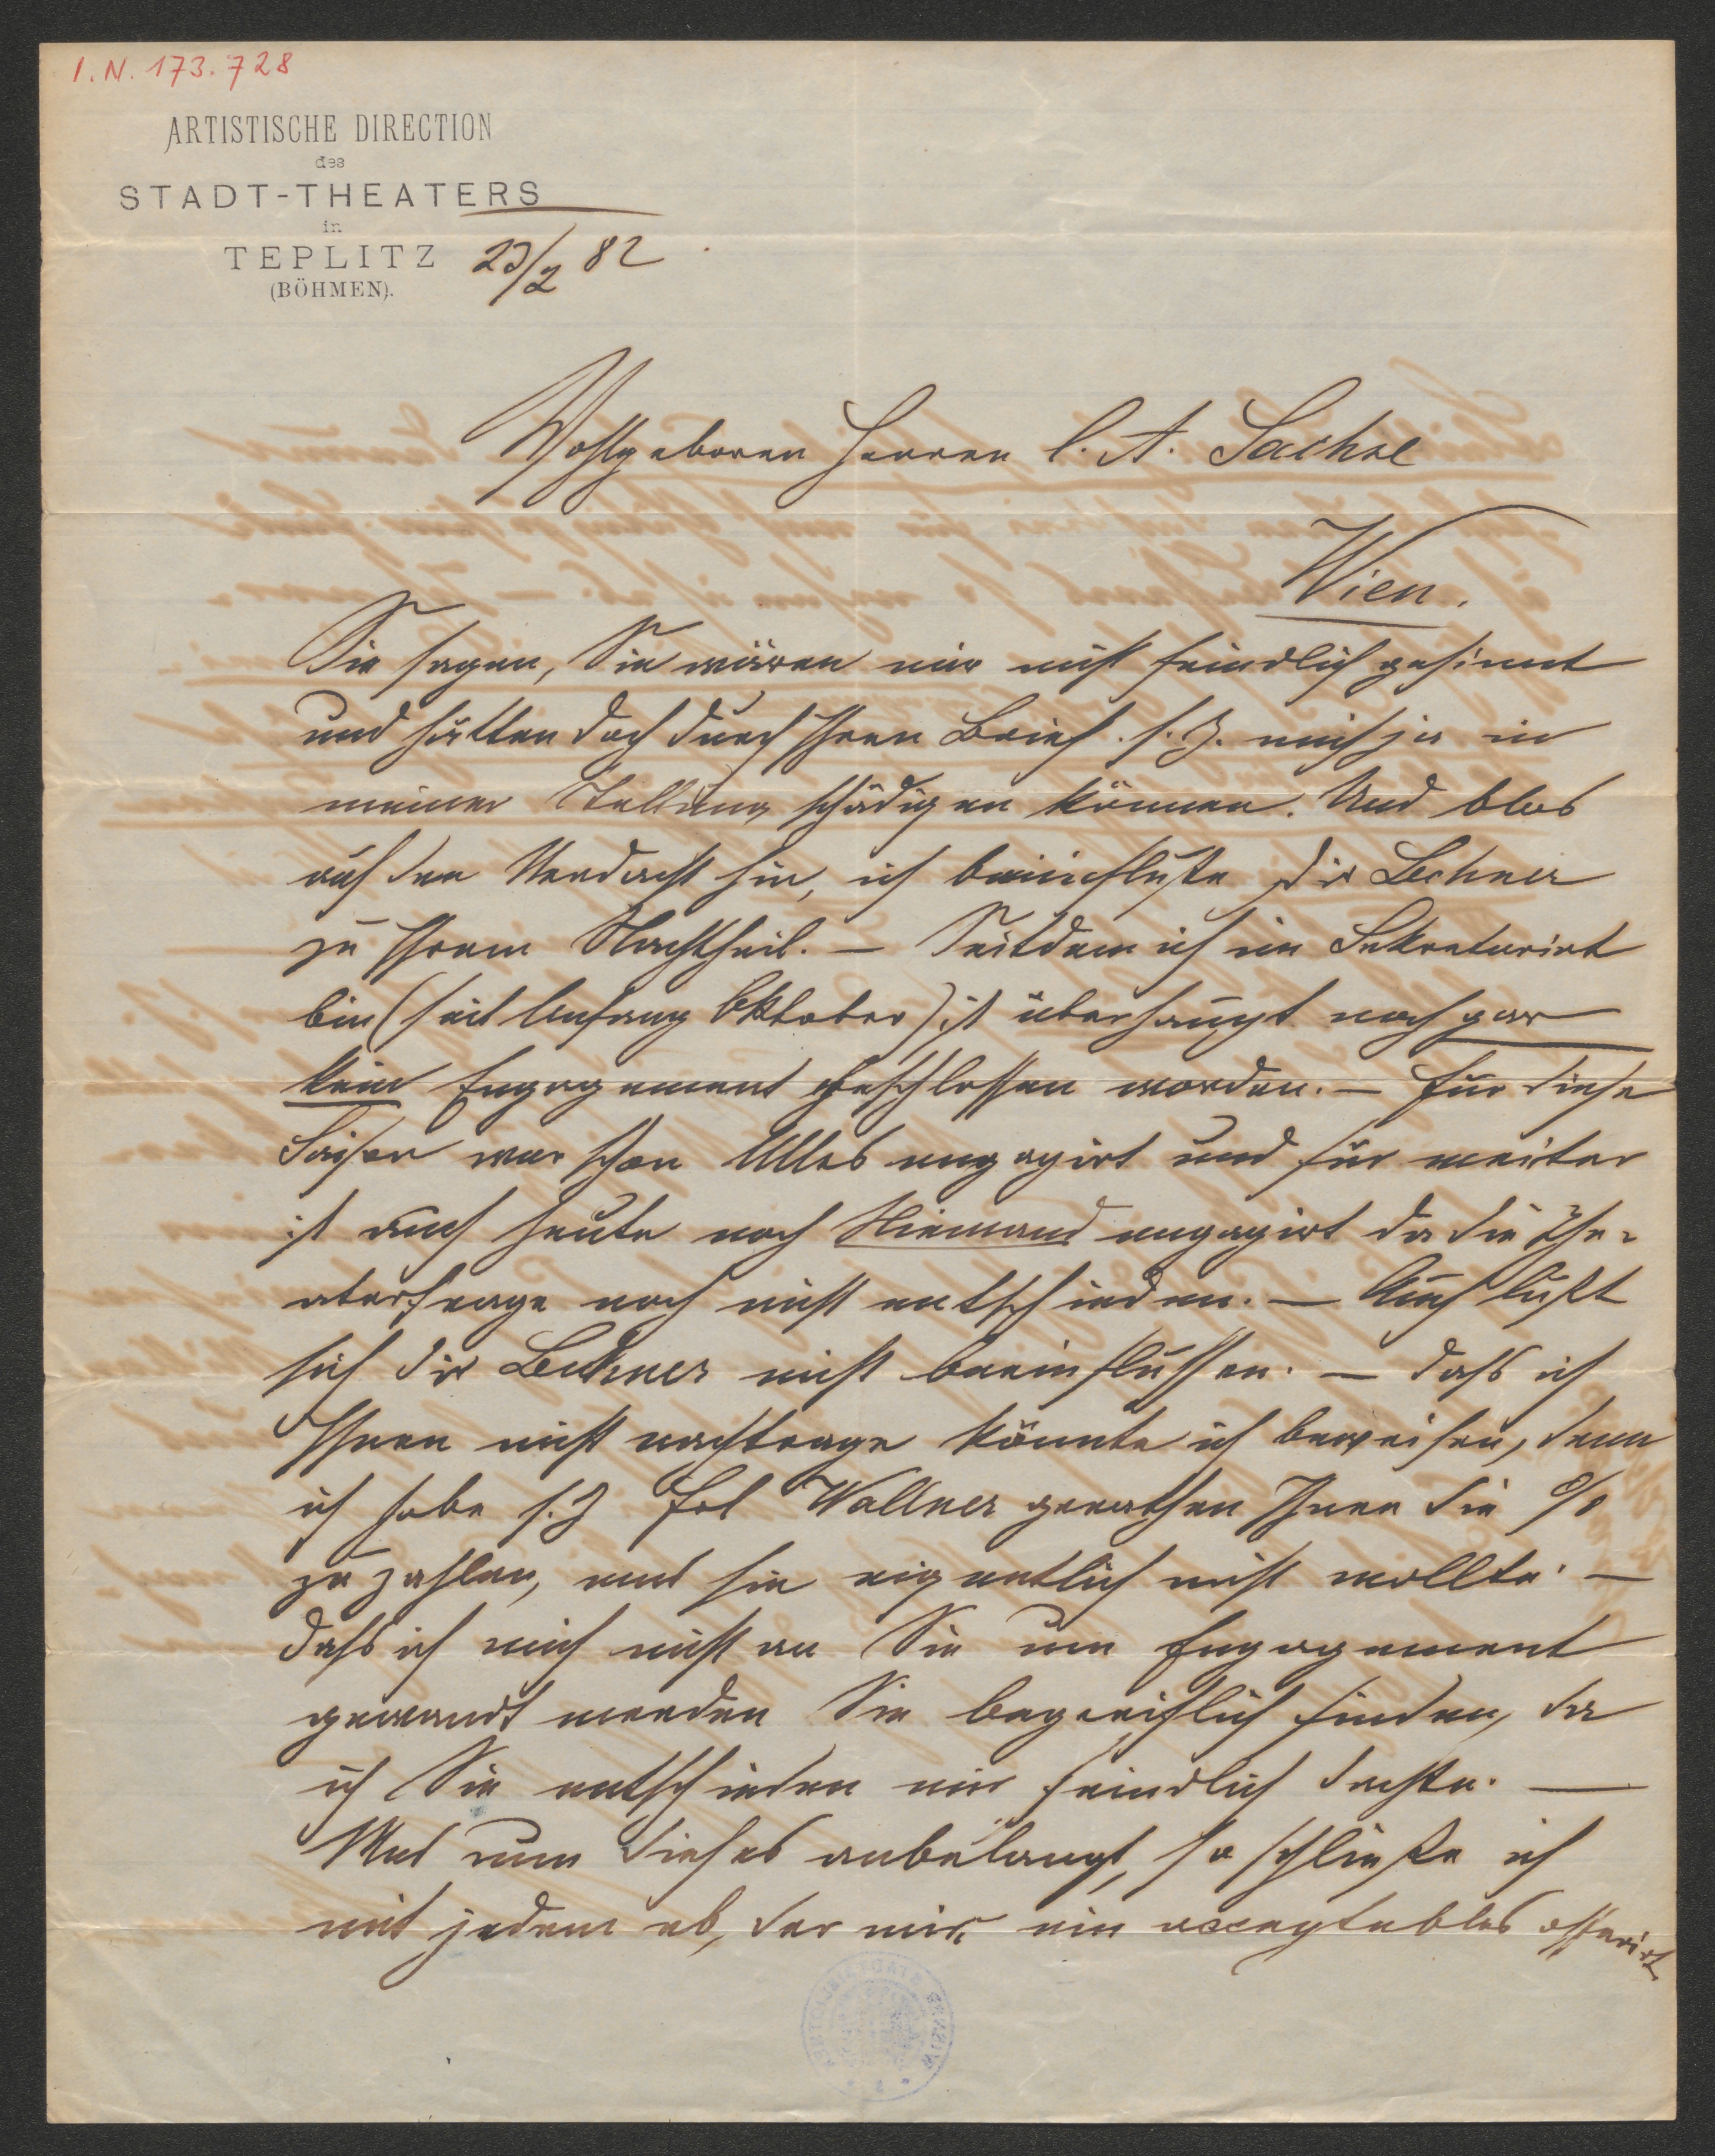 I.N. 173.728
ARTISTISCHE DIRECTION
des
STADT-THEATERS
in
TEPLITZ 23/2 82
(BÖHMEN).
Wohlgeboren Herren C. A. Sachse
Wien.
Sie sagen, Sie wären mir nicht feindlich gesinnt
und hätten doch durch Ihren Brief s. Z. mich ja in
meiner Stellung schädigen können. Und blos
auf den Verdacht hin, ich beeinflußte Dir Lechner
zu Ihrem Nachtheil. — Seitdem ich im Sekretariat
bin (seit Anfang Oktober) ist überhaupt noch gar
kein Engagement geschlossen worden. — Für diese
Saison war schon Alles engagirt und für weiter
ist auch heute noch Niemand engagirt da die The-
aterfrage noch nicht entschieden. — Auch läßt
sich Dir Lechner nicht beeinflussen. — Daß ich
Ihnen nicht nachtrage könnte ich beweisen, denn
ich habe s. Z Frl Wallner gerathen Ihnen die %
zu zahlen, was sie eigentlich nicht wollte. —
Daß ich mich nicht an Sie um Engagement
gewandt werden Sie begreiflich finden, da
ich Sie entschieden mir feindlich dachte. —
Was nun dieses anbelangt, so schließe ich
mit jedem ab, der mir ein acceptables offerirt